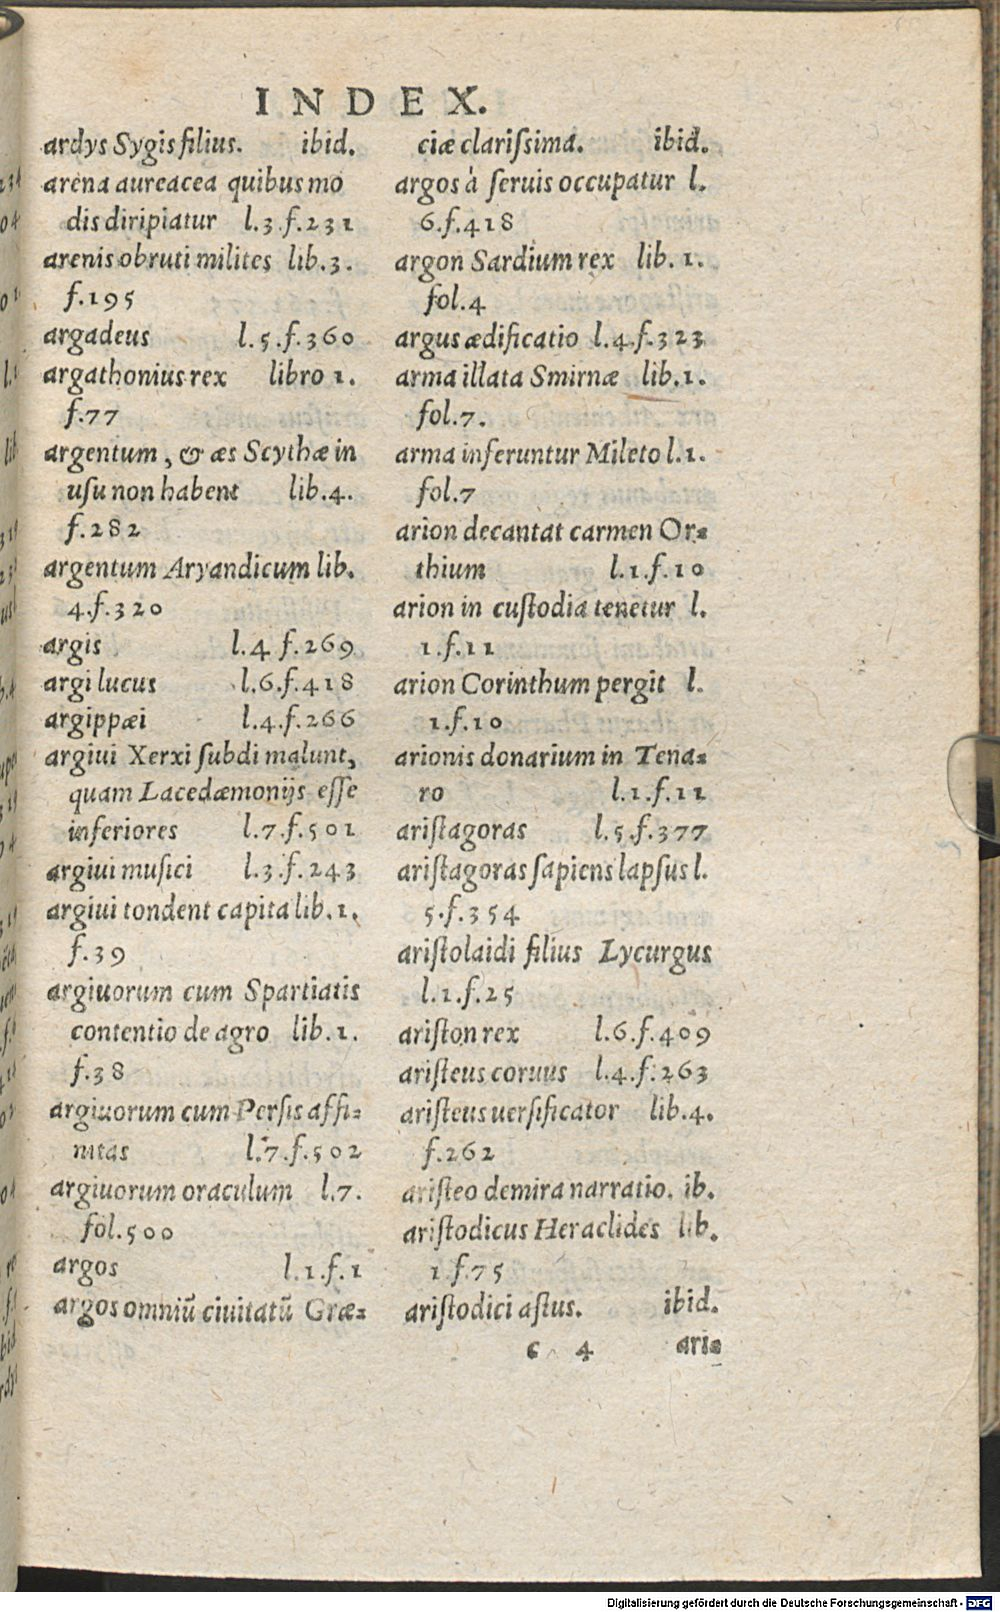 INDEX.
ardys Sygis filius. ibid.
arena aureacea quibus mo
dis diripiatur l.3.f.231
arenis obruti milites lib.3.
f.195
argadeus l.5.f.360
argathonius rex libro 1.
f.77
argentum, & æs Scythæ in
usu non habent lib.4.
f.282
argentum Aryandicum lib.
4.f.320
argis l.4 f.269
argi lucus l.6.f.418
argippæi l.4.f.266
argiui Xerxi ſubdi malunt,
quam Lacedæmonijs eſſe
inferiores l.7.f.501
argiui musici l.3.f.243
argiui tondent capita lib.1.
f.39
argiuorum cum Spartiatis
contentio de agro lib.1.
f.38
argiuorum cum Persis affi=
nitas l.7.f.502
argiuorum oraculum l.7.
fol.500
argos l.1.f.1
argos omniū ciuitatū Græ=
ciæ clariſsima. ibid.
argos à ſeruis occupatur l.
6.f.418
argon Sardium rex lib.1.
fol.4
argus ædificatio l.4.f.323
arma illata Smirnæ lib.1.
fol.7.
arma inferuntur Mileto l.1.
fol.7
arion decantat carmen Or=
thium l.1.f.10
arion in cuſtodia tenetur l.
1.f.11
arion Corinthum pergit l.
1.f.10
arionis donarium in Tena=
ro l.1.f.11
ariſtagoras l.5.f.377
ariſtagoras ſapiens lapſus l.
5.f.354
ariſtolaidi filius Lycurgus
l.1.f.25
ariſton rex l.6.f.409
ariſteus coruus l.4.f.263
ariſteus uerſificator lib.4.
f.262
ariſteo de mira narratio. ib.
ariſtodicus Heraclides lib.
1.f.75
ariſtodici aſtus. ibid.
c 4 ari=
Digitalisierung gefördert durch die Deutsche Forschungsgemeinschaft - DFG